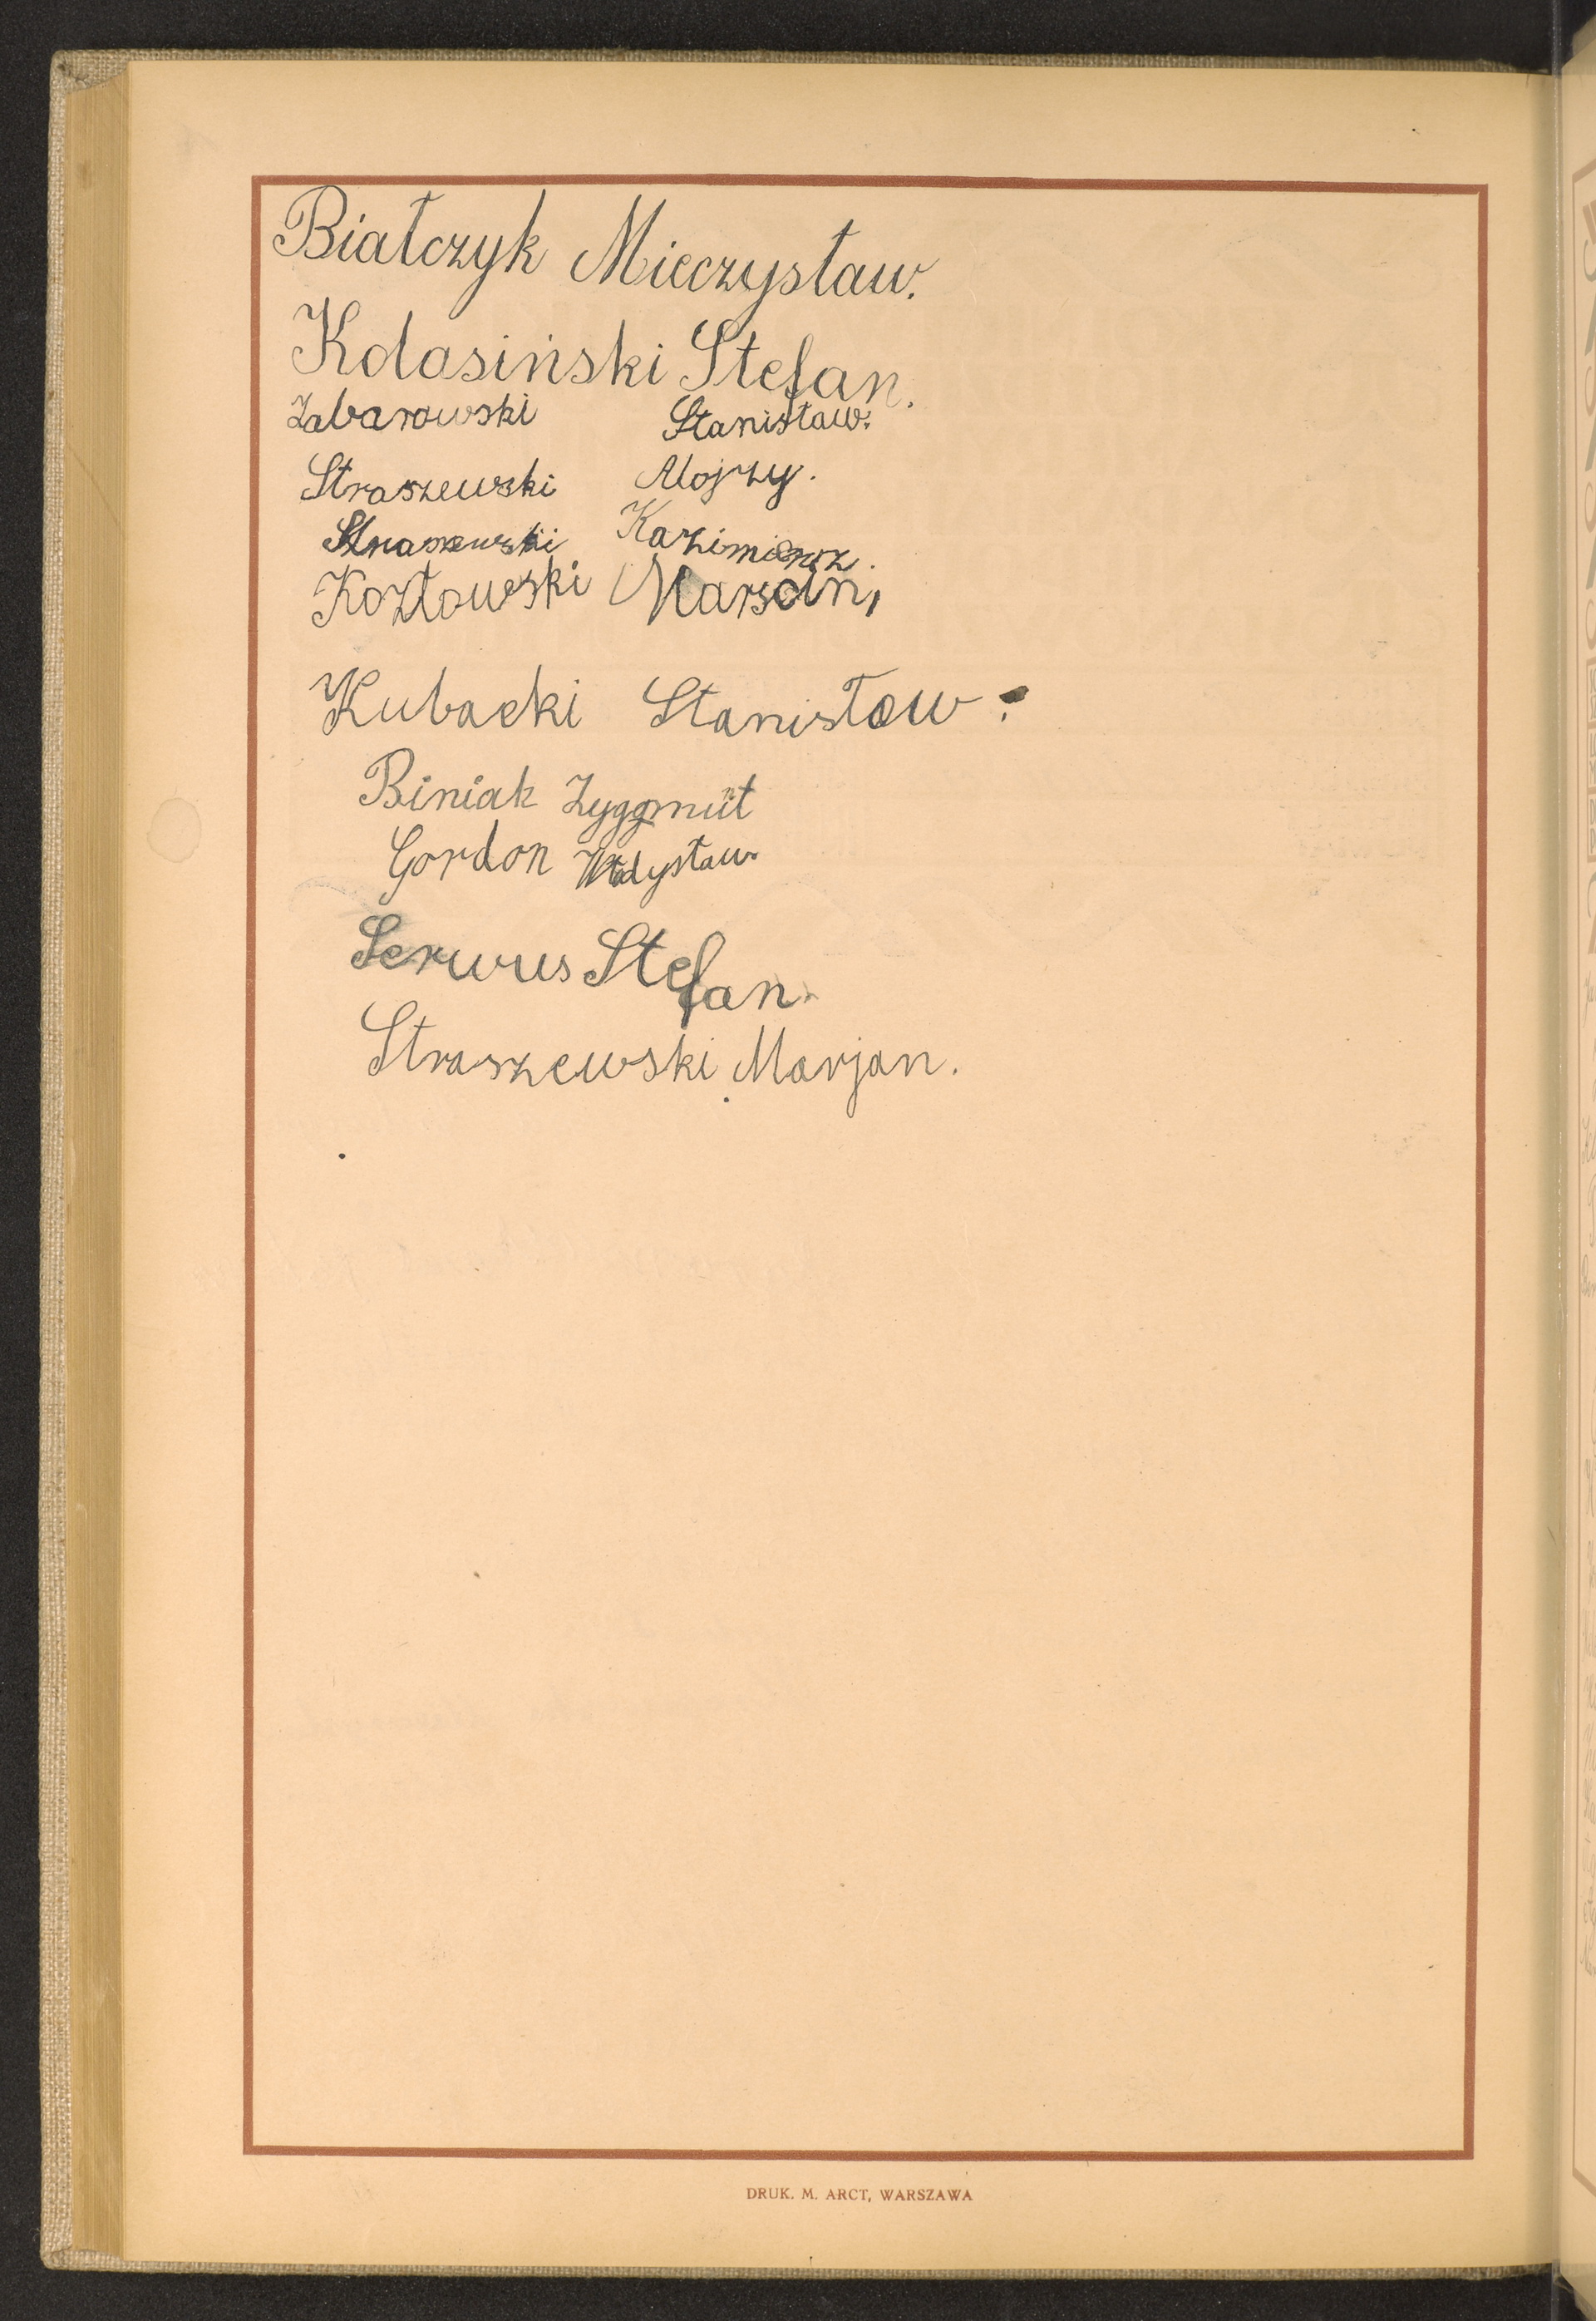 Białczyk Mieczysław.
Kdasiński Stefan.
Zabarowski Stanisław.
Straszewski Alojzy.
Straszewski Kazimierz.
Kozłowski Marscin,
Kubacki Stanisław.
Biniak Zyggmunt
Gordon Władysław
Serwus Stefan.
Straszewski Marjan.
DRUK. M. ARCT, WARSZAWA